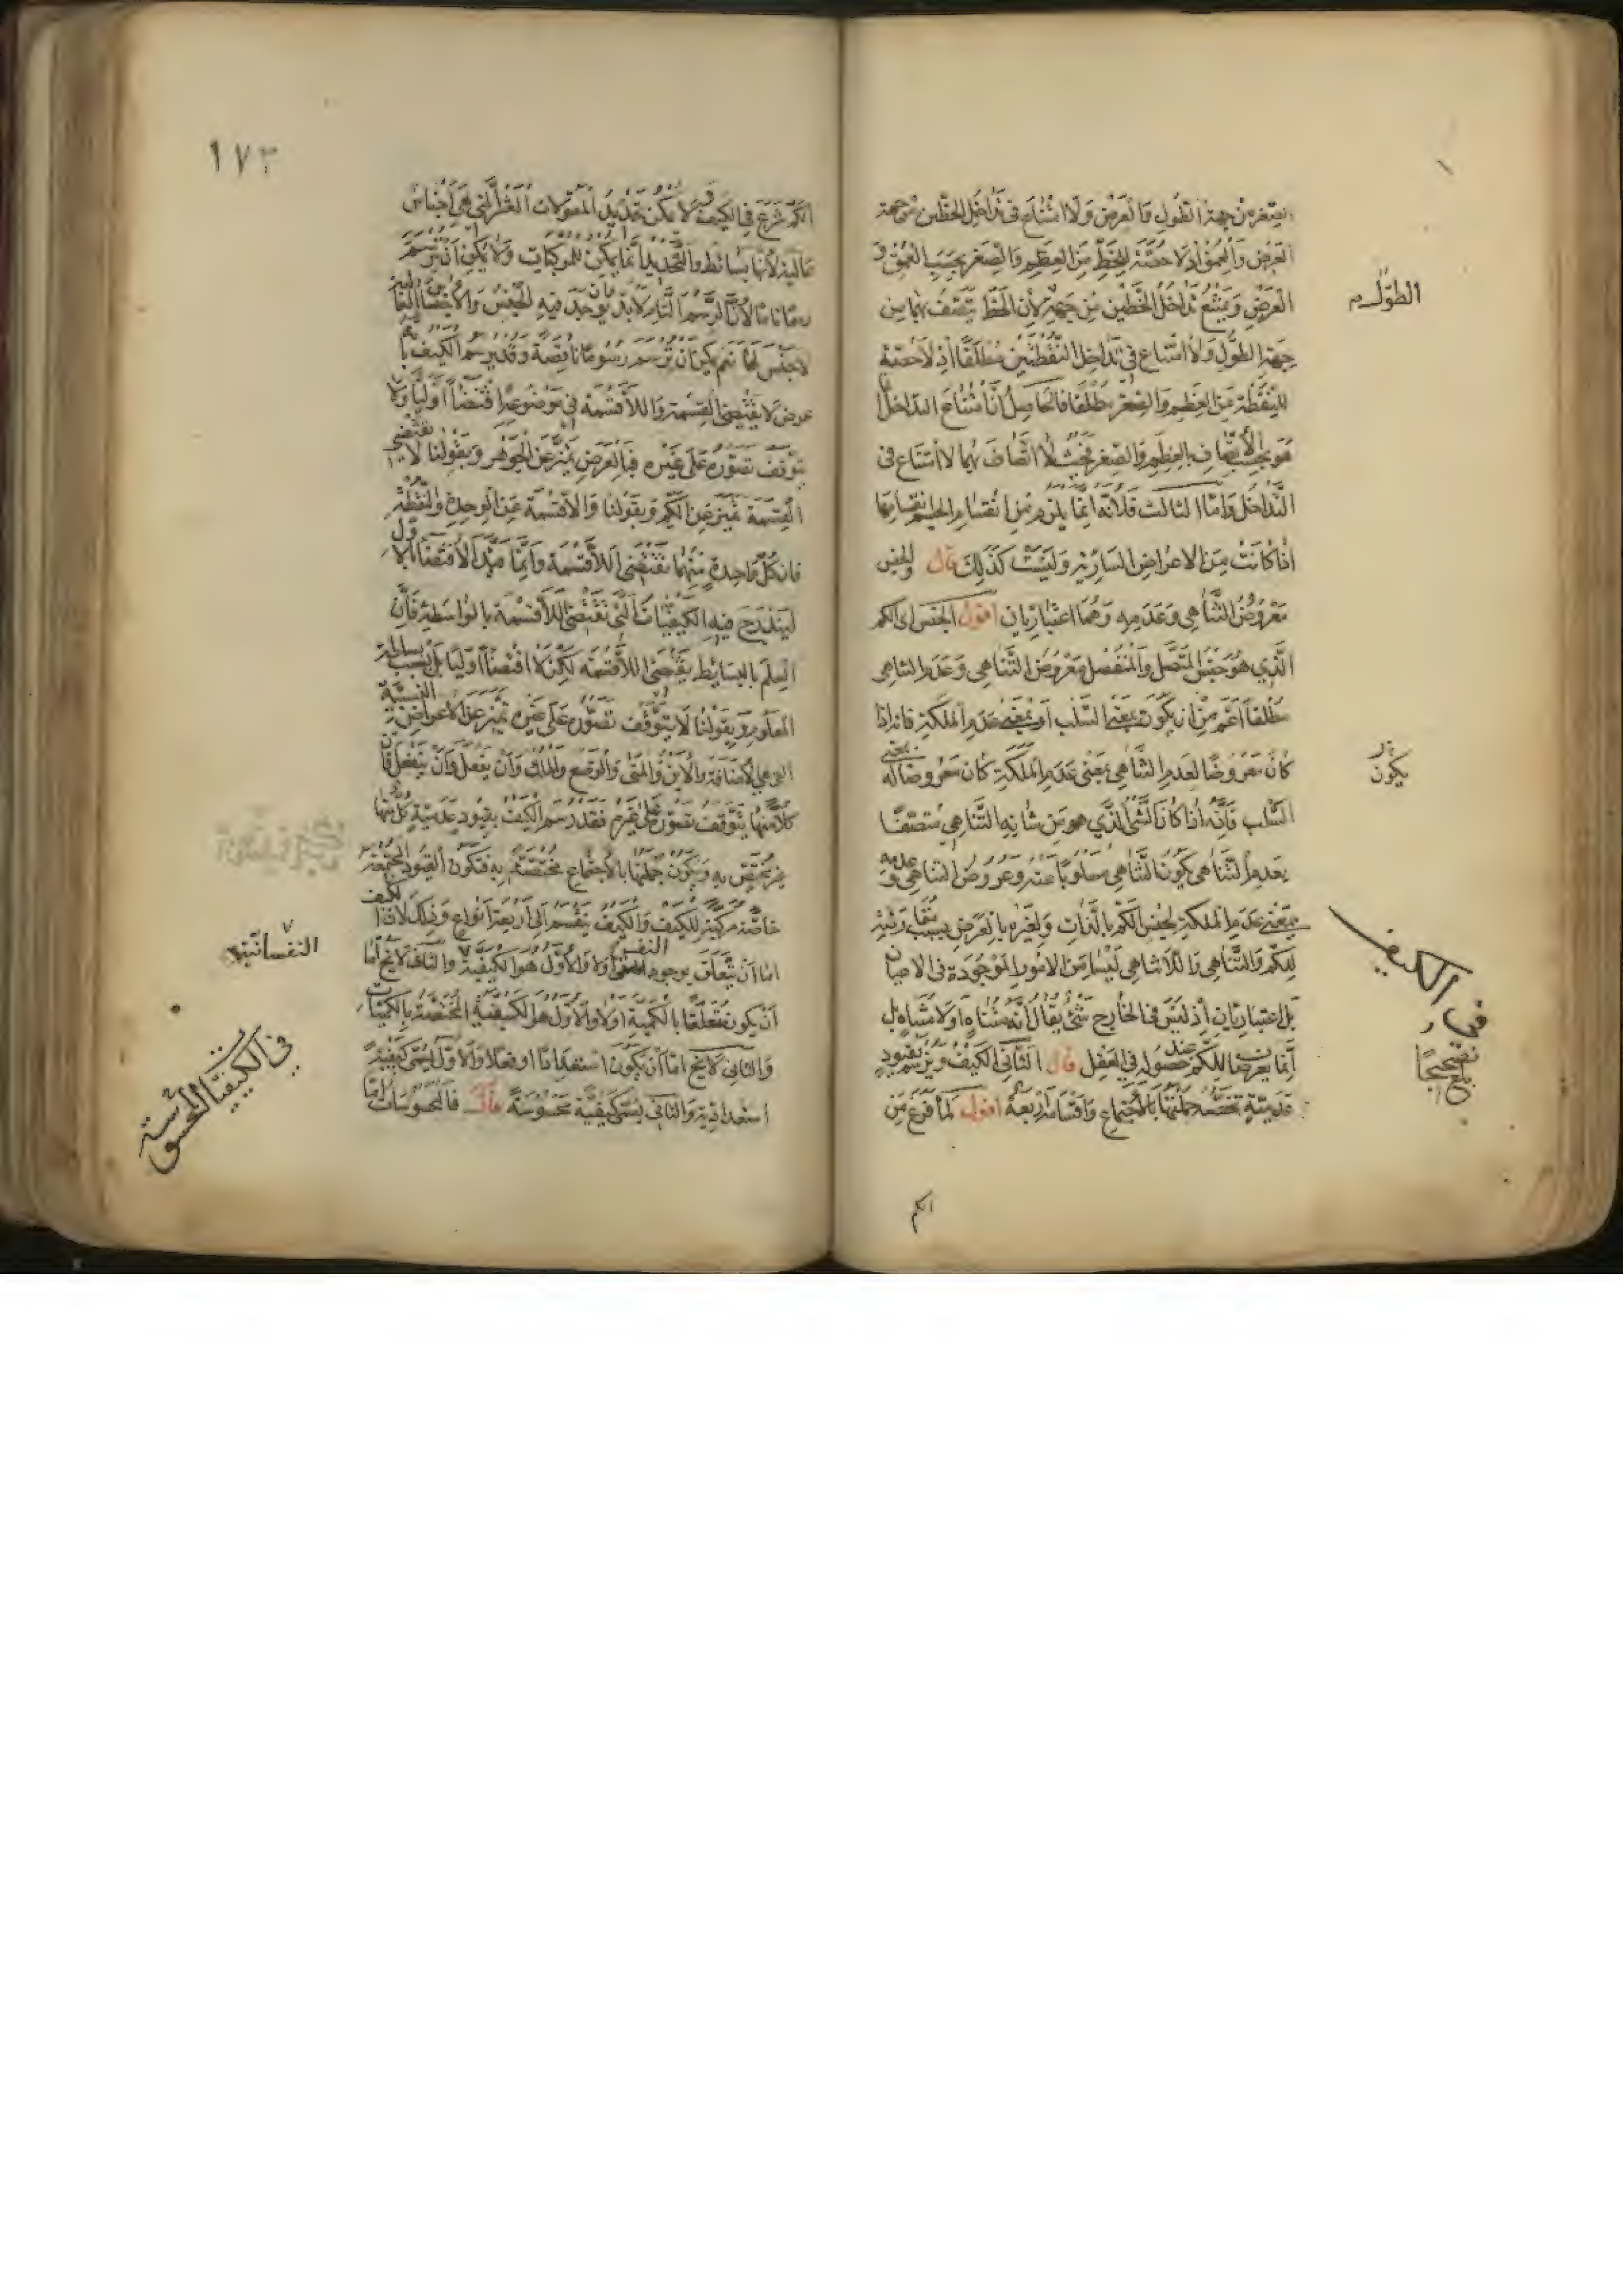 الصغر من جهة الطول والعرض ولا امتناع في تداخل الخطين من جهة
العرض والعمق اذ لا حصة للخط من العظم والصغر بحسب العمق و
العرض ويمتنع تداخل الخطين من جهة لأن الخط يتصف بهما من
الطول
جهة الطول ولا امتناع في تداخل النقطتين مطلقا اذ لا حصة
للنقطة من العظم والصغر مطلقا فالحاصل أن امتناع التداخل
هو بحسب الاتصاف بالعظم والصغر فحيث لا اتصاف بهما لا امتناع في
التداخل واما الثالث فلانه انما يلزم من انقسام الجسم انقسامها
اذا كانت من الاعراض السارية وليست كذلك قال والجنس
معروض التناهي وعدمه وهما اعتباريان اقول الجنس اى الكم
الذي هو جنس المتصل والمنفصل معروض التناهي وعدم التناهي
مطلقا اعم من ان يكون بمعنى السلب او بمعنى عدم الملكة فانه اذا
كان معروضا لعدم التناهي بمعنى عدم الملكة كان معروضا له بمعنى
يكون
السلب فانه اذا كان الشئ الذي هو من شانه التناهي متصفا
بعدم التناهي يكون التناهي مسلوبا عنه وعروض التناهي وعدمه
بمعنى عدم الملكة لجنس الكم بالذات ولغيره بالعرض بسبب مقارنته
للكم والتناهي واللاتناهي ليسا من الامور الموجودة في الاعيان
بل اعتباريان اذ ليس في الخارج شئ يقال انه متناه او لا متناه بل
انما يعرضان للكم عند حصوله في العقل قال الثاني الكيف ويرسم بقيود
عدمية تخصه جملتها بالاجتماع واقسامه اربعة اقول لما فرغ من
في الكيف
بلغ تصحيحا
الكم
١٧٣
الكم شرع في الكيف ولا يمكن تحديد المقولات العشر التي هي اجناس
عالية لانها بسائط والتحديد انما يمكن للمركبات ولا يمكن ان ترسم
رسما تاما لان الرسم التام لا بد وان يوجد فيه الجنس والاجناس العالية
لا جنس لها نعم يمكن ان ترسم رسوما ناقصة وقد يرسم الكيف بأنه
عرض لا يقتضي القسمة واللاقسمة في موضوعه اقتضاء اوليا ولا
يتوقف تصوره على غيره فبالعرض تميز عن الجوهر وبقولنا لا يقتضي
القسمة تميز عن الكم وبقولنا واللاقسمة عن الوحدة والنقطة
فان كل واحدة منهما تقتضي اللاقسمة وانما قيد الاقتضاء بالاول
ليندرج فيه الكيفيات التي تقتضي اللاقسمة بالواسطة فان
العلم بالبسائط يقتضي اللاقسمة لكن لا اقتضاء اوليا بل بسبب بساطة
المعلوم وبقولنا لا يتوقف تصوره على غيره تميز عن الاعراض النسبية
التي هي الاضافة والاين والمتى والوضع والملك وان يفعل وان ينفعل فان
كلا منها يتوقف تصوره على غيره فقد رسم الكيف بقيود عدمية كل منها
غير مختص به ويكون جملتها بالاجتماع مختصة به فتكون القيود المجتمعة
خاصة مركبة للكيف والكيف ينقسم الى اربعة انواع وذلك لان الكيف
اما ان يتعلق بوجود النفس اولا والاول هو الكيفية والثاني لا يخ اما
النفسانية
ان يكون متعلقا بالكمية اولا والاول هو الكيفية المختصة بالكميات
والثاني لا يخ اما ان يكون استعدادا او فعلا والاول يسمى كيفية
استعدادية والثاني يسمى كيفية محسوسة قال فالمحسوسات اما
في الكيفيات المحسوسة